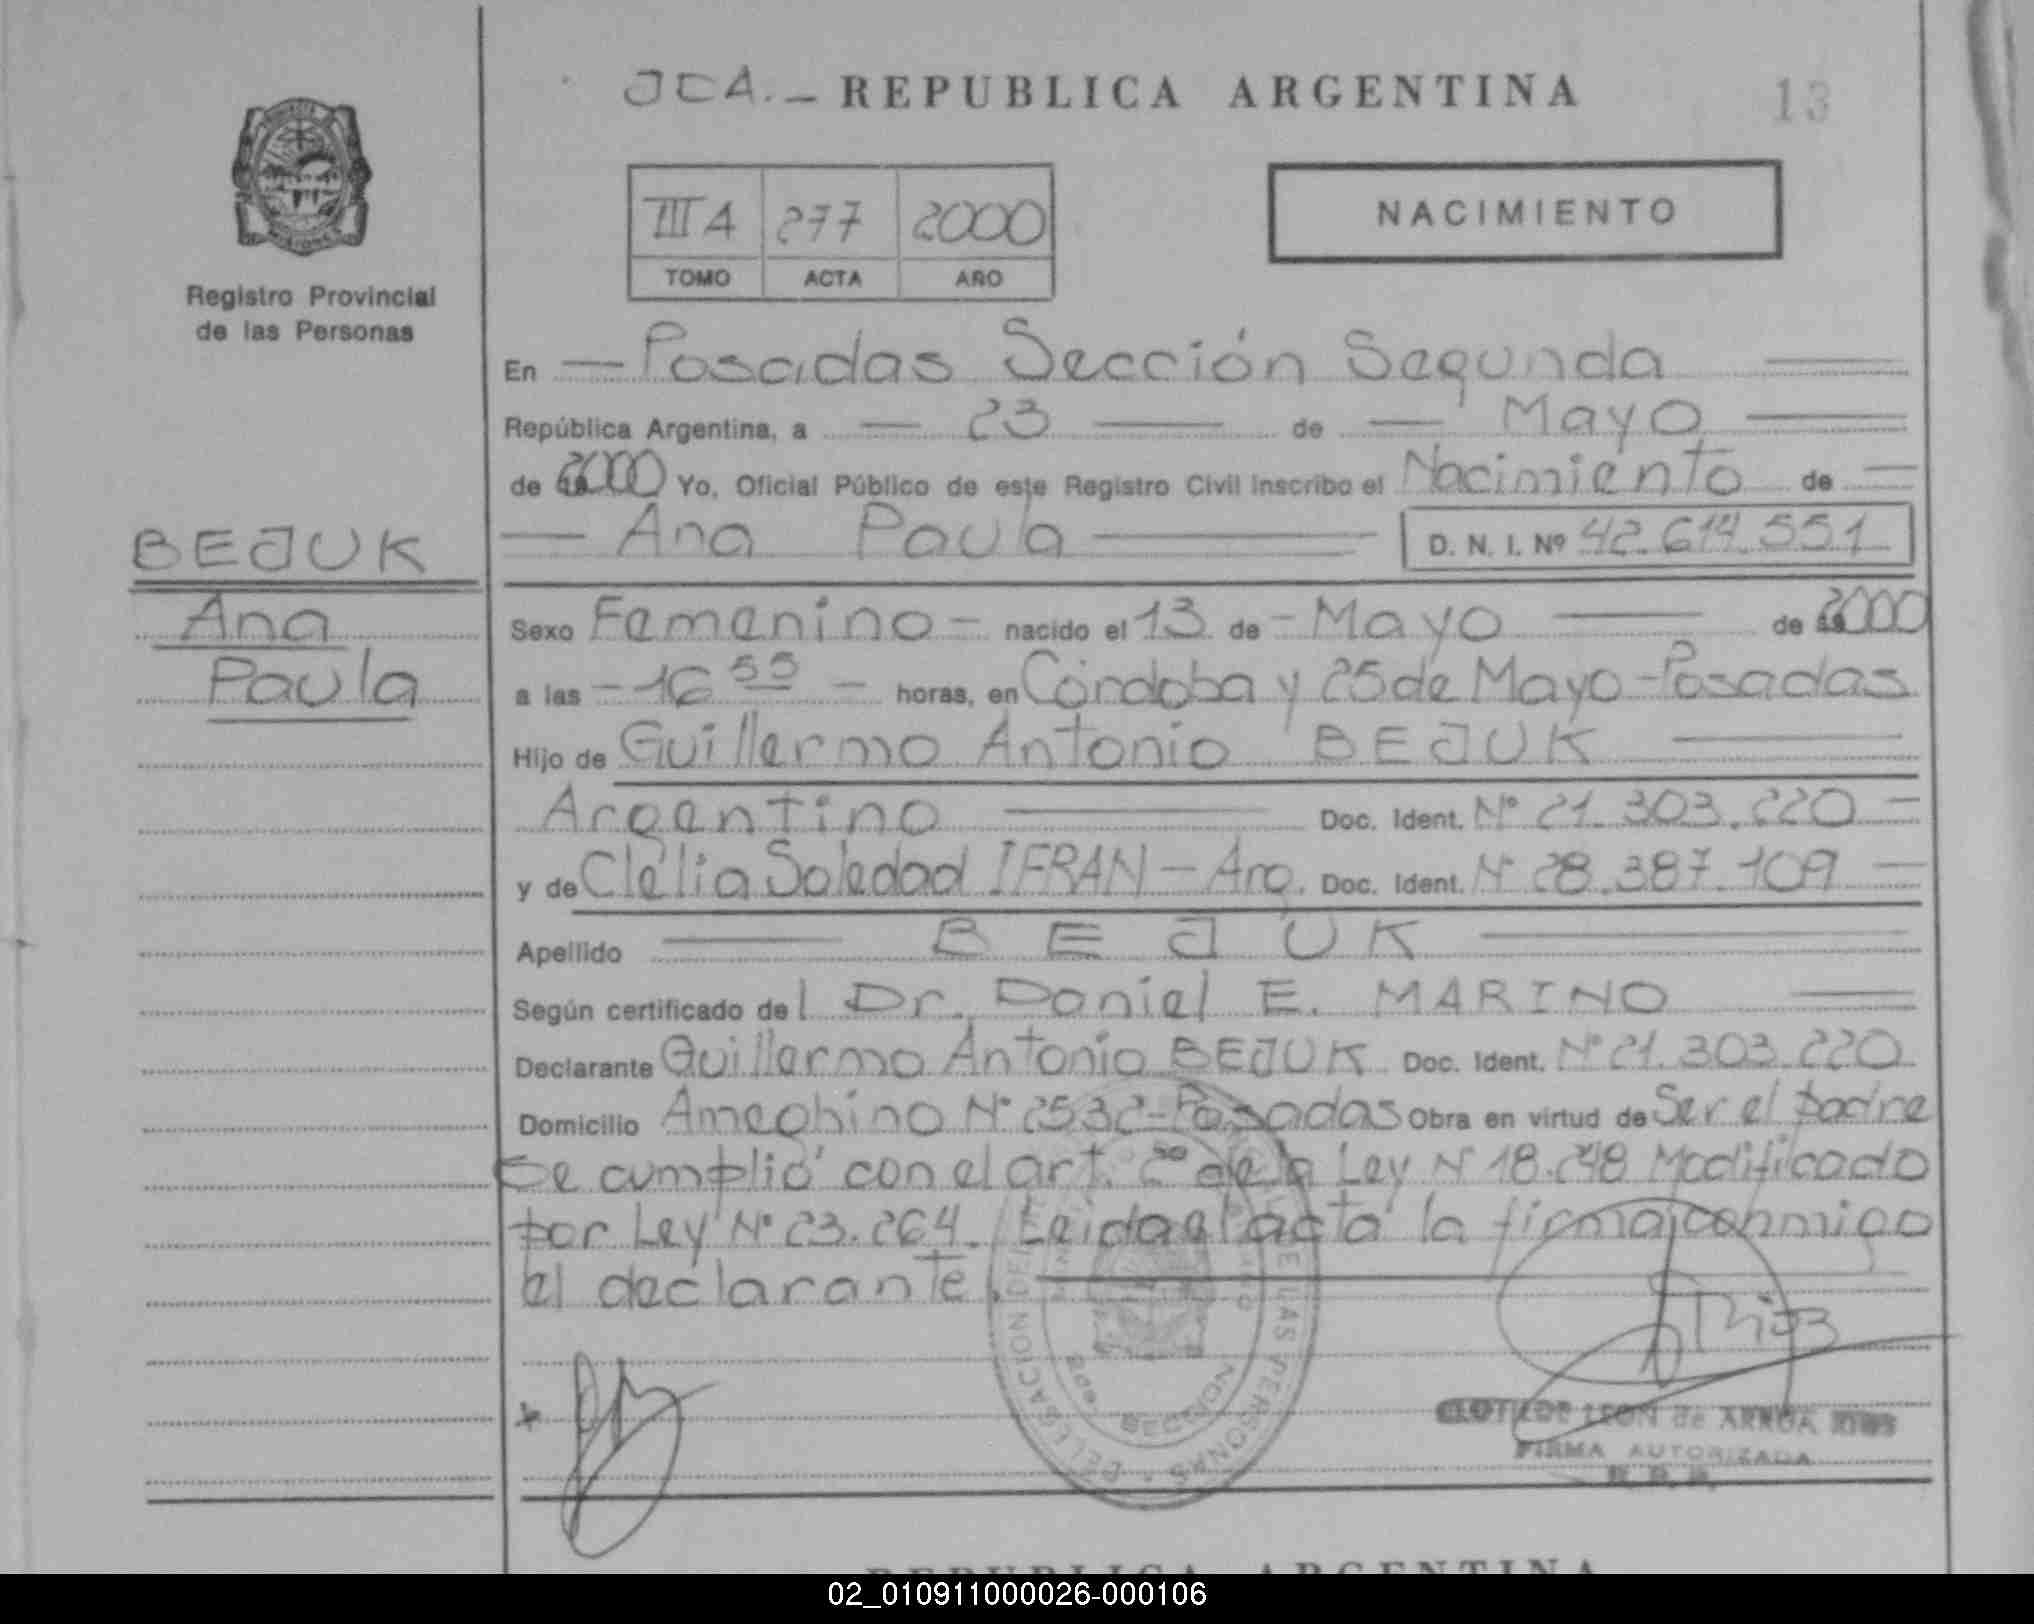 JCA. - REPUBLICA ARGENTINA 13
Registro Provincial
de las Personas
III A 277 2000
TOMO ACTA AÑO
NACIMIENTO
En — Posadas Sección Segunda —
República Argentina, a — 23 — de — Mayo —
de 2000 Yo, Oficial Público de este Registro Civil inscribo el Nacimiento de —
— Ana Paula — D. N. I. Nº 42.614.551
BEJUK
Ana
Paula
Sexo Femenino - nacido el 13 de - Mayo — de 2000
a las - 16 55 - horas, en Córdoba y 25 de Mayo - Posadas
Hijo de Guillermo Antonio BEJUK —
Argentino — Doc. Ident. Nº 21.303.220 —
y de Clelia Soledad IFRAN - Arg. Doc. Ident. Nº 28.387.109 —
Apellido — BEJUK —
Según certificado del Dr. Daniel E. MARINO —
Declarante Guillermo Antonio BEJUK Doc. Ident. Nº 21.303.220
Domicilio Ameghino Nº 2532 - Posadas Obra en virtud de Ser el padre
Se cumplió con el art. 2º de la Ley Nº 18.248 Modificado
por Ley Nº 23.264. Leida el acta la firma conmigo
el declarante. —
DELEGACION DE LAS PERSONAS
SECCION
CLOTILDE LEON de ARRUA
FIRMA AUTORIZADA
REPUBLICA ARGENTINA
02_010911000026-000106